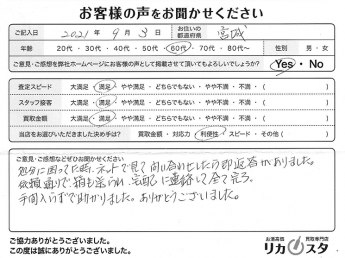 お客様の声をお聞かせください
ご記入日 2021年 9月 3日 お住いの都道府県 宮城
年齢 20代・30代・40代・50代・60代・70代・80代~ 性別 男・女
ご意見・ご感想を弊社ホームページにお客様の声として掲載させて頂いてもよろしいでしょうか? Yes・No
査定スピード 大満足・満足・やや満足・どちらでもない・やや不満・不満・( )
スタッフ接客 大満足・満足・やや満足・どちらでもない・やや不満・不満・( )
買取金額 大満足・満足・やや満足・どちらでもない・やや不満・不満・( )
当店をお選びいただきました決め手は? 買取金額・対応力・利便性・スピード・その他( )
ご意見・ご感想などぜひお聞かせください
処分に困ってた時、ネットで見て問い合わせしたら即返答がありました。
依頼通りで、箱も送られ、宅配に連絡して全て完了。
手間入らずで助かりました。ありがとうございました。
ご協力ありがとうございました。
この度は誠にありがとうございました。
お酒高価買取専門店
リカスタ